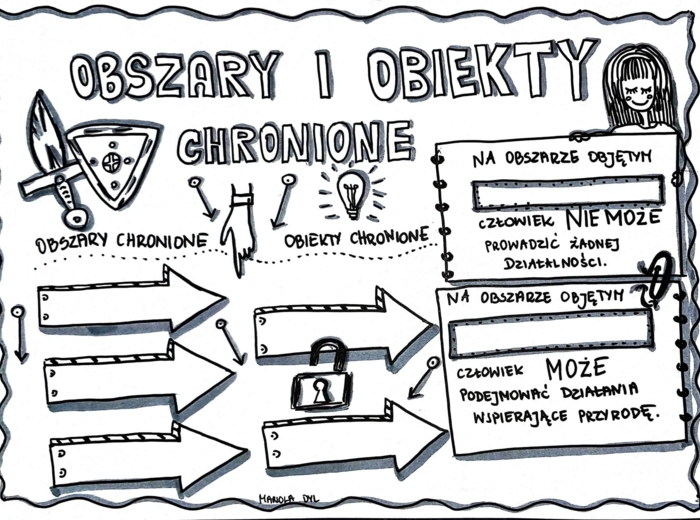 OBSZARY I OBIEKTY
CHRONIONE
OBSZARY CHRONIONE
OBIEKTY CHRONIONE
NA OBSZARZE OBJĘTYM
CZŁOWIEK NIE MOŻE
PROWADZIĆ ŻADNEJ
DZIAŁALNOŚCI.
NA OBSZARZE OBJĘTYM
CZŁOWIEK MOŻE
PODEJMOWAĆ DZIAŁANIA
WSPIERAJĄCE PRZYRODĘ.
MARIOLA DYL